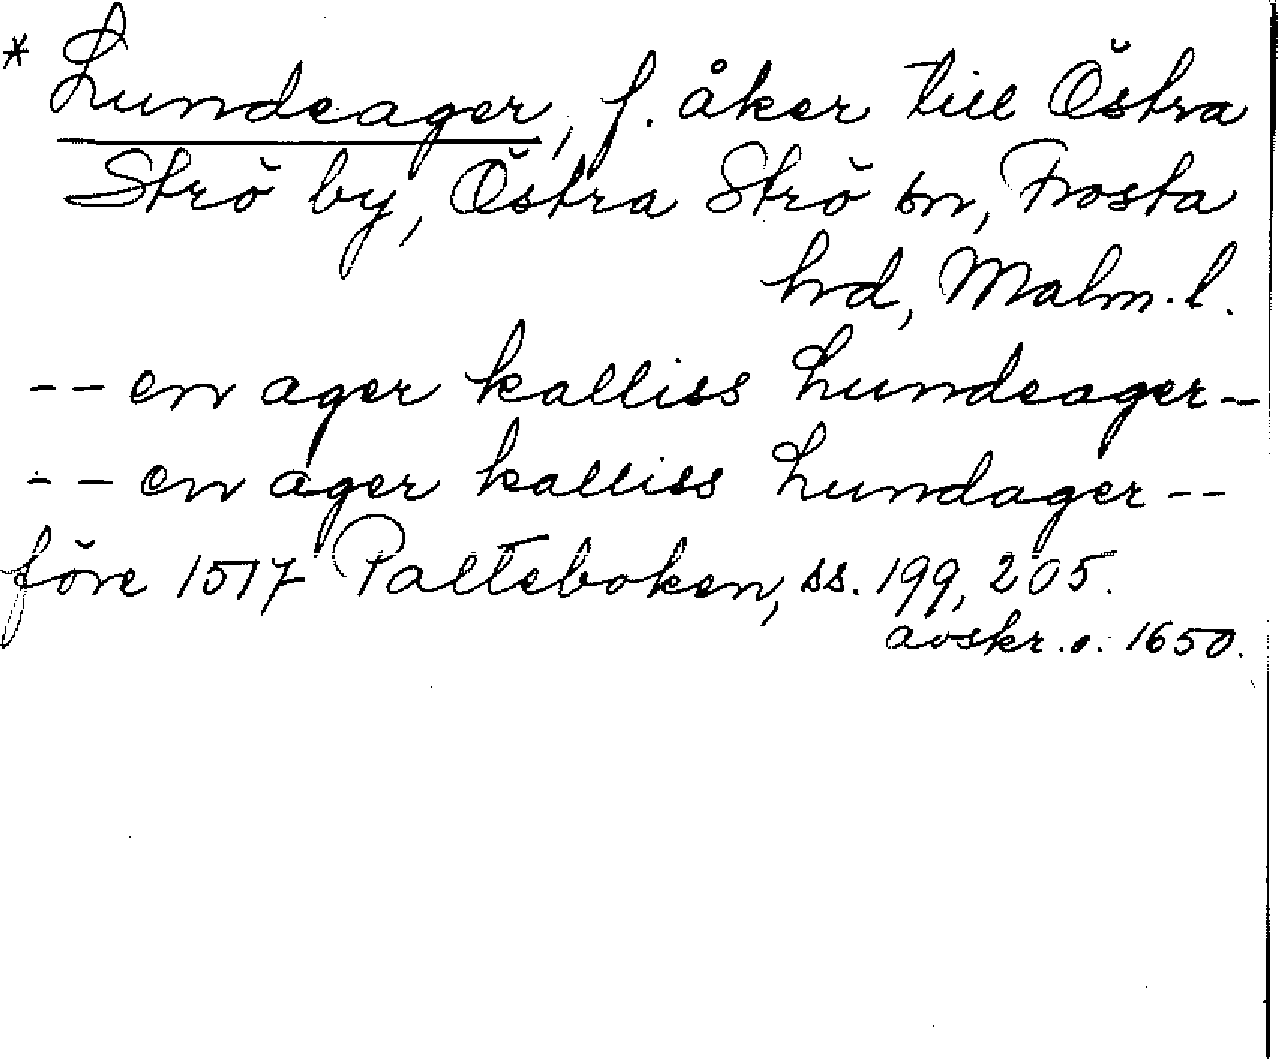 * Lundeager, f. åker till Östra
Strö by, Östra Strö sn, Frosta
hrd, Malm. l.
-- en ager kalliss Lundeager -
-- en ager kalliss Lundager --
före 1517 Palteboken, ss. 199, 205.
avskr. o. 1650.